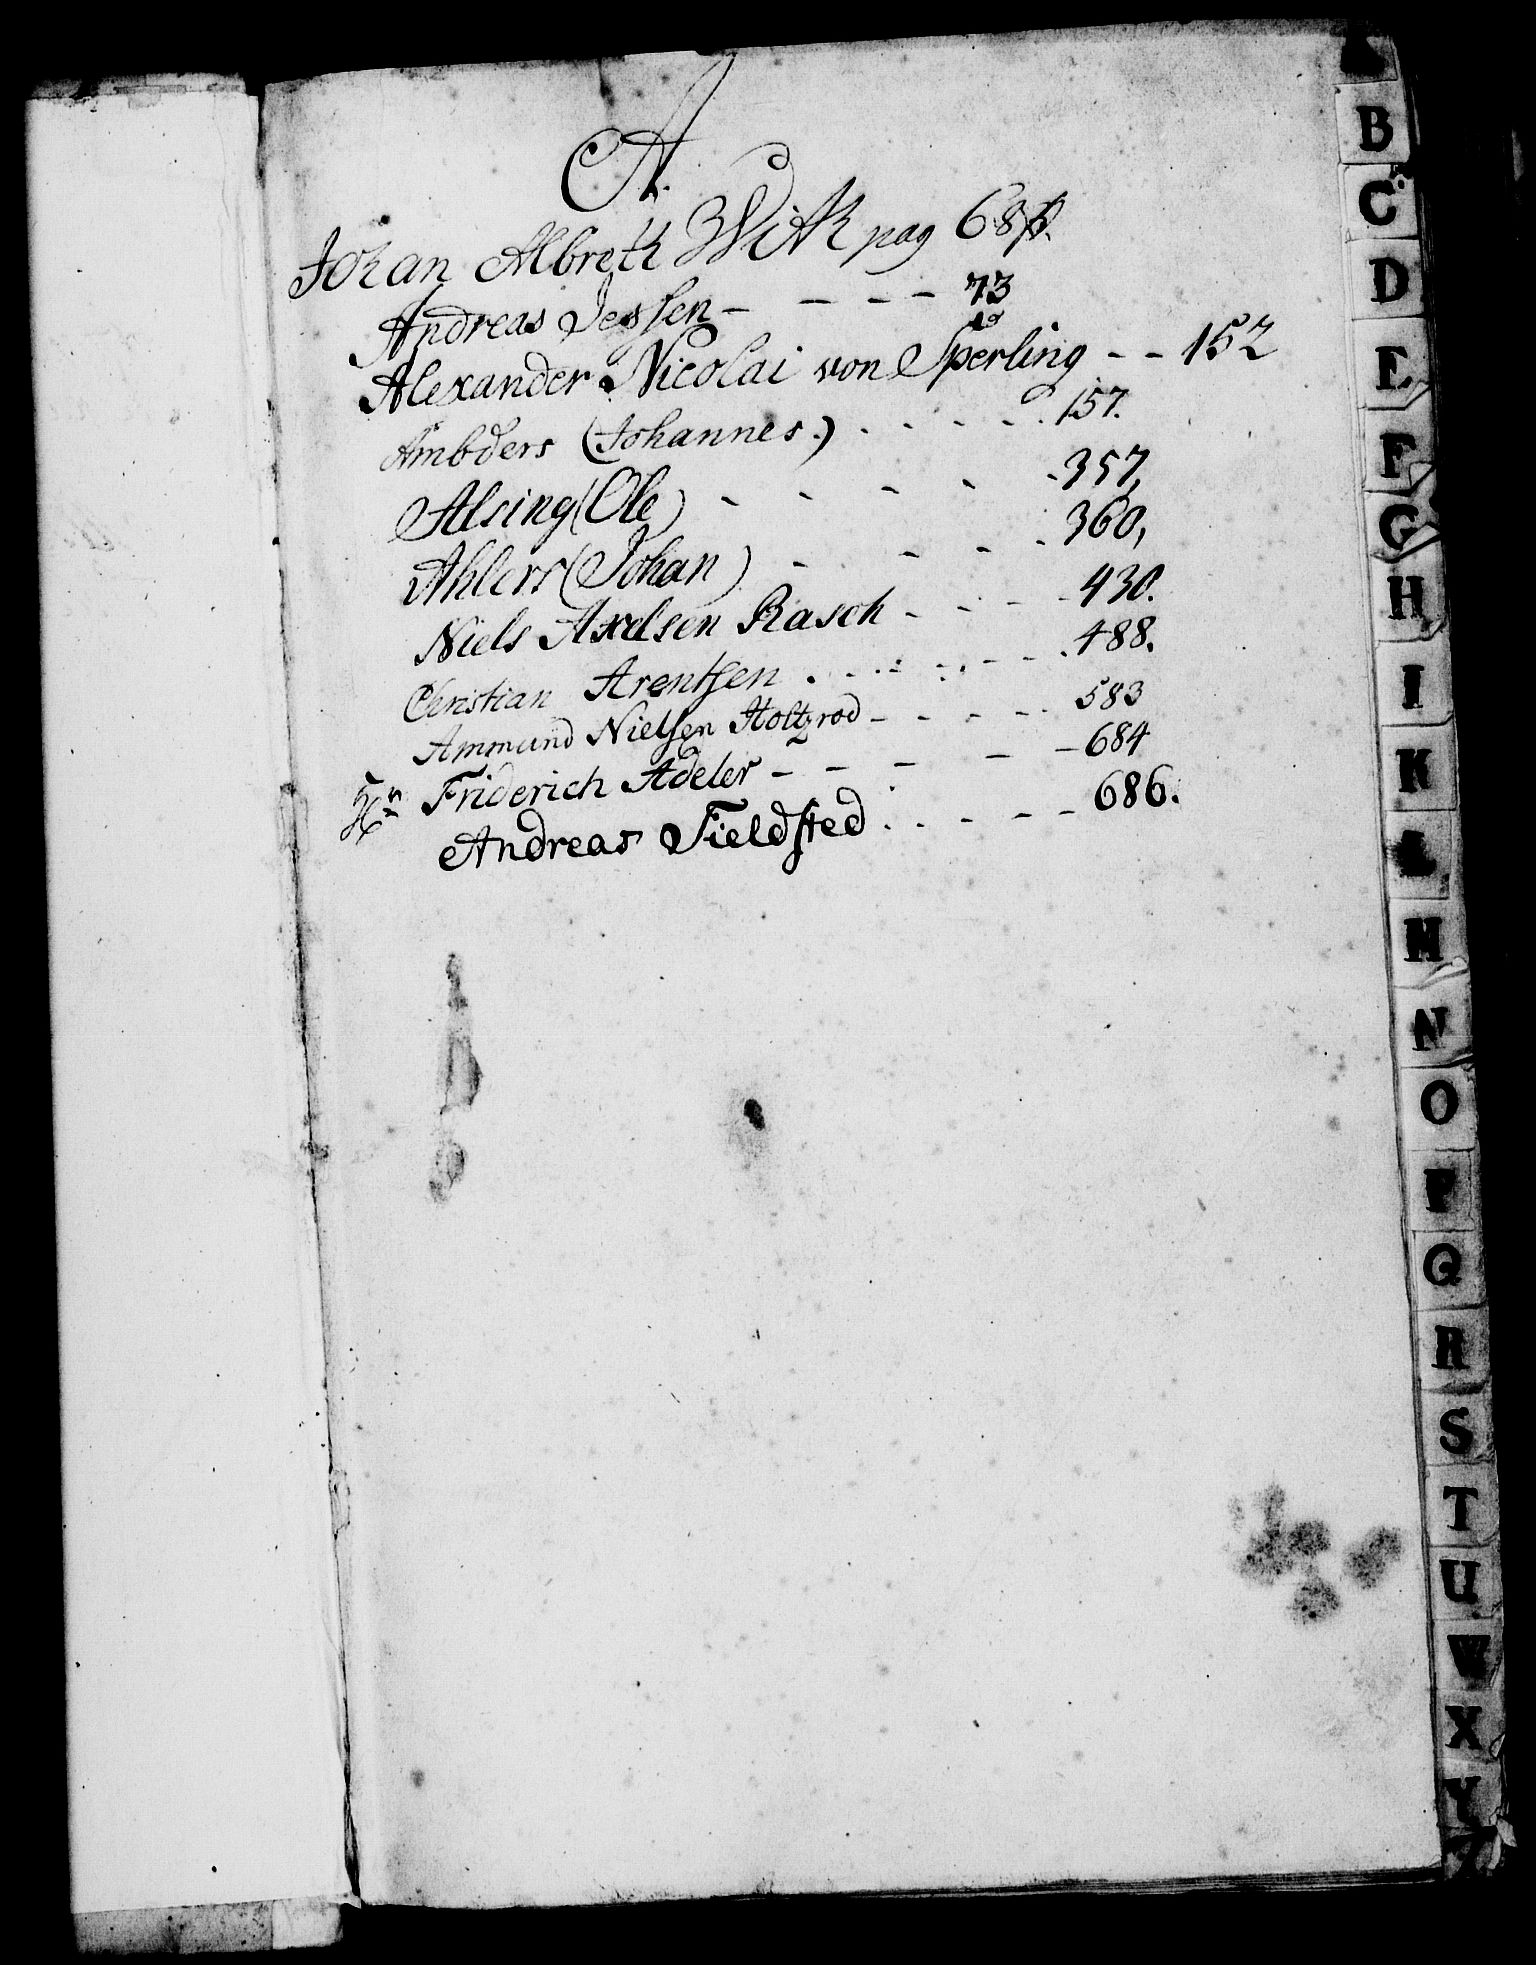 A.
Johan Albreth With pag 68
Andreas Jessen - - - - 73
Alexander Nicolai von Sperling - - 152
Ambders (Johannes.) . . . . . . 157.
Alsing (Ole) - - - - - 357,
Ahlers (Johan) - - - - 360,
Niels Axelsen Rasch - - - - 430.
Christian Arentsen . . . . . - - . 488.
Ammund Nielsen Holtzrod - - - - 583
Hr Friderich Adeler - - - - - 684
Andreas Fieldsted . . - - - 686.
B
C
D
E
F
G
H
I
K
L
M
N
O
P
Q
R
S
T
U
W
X
Y